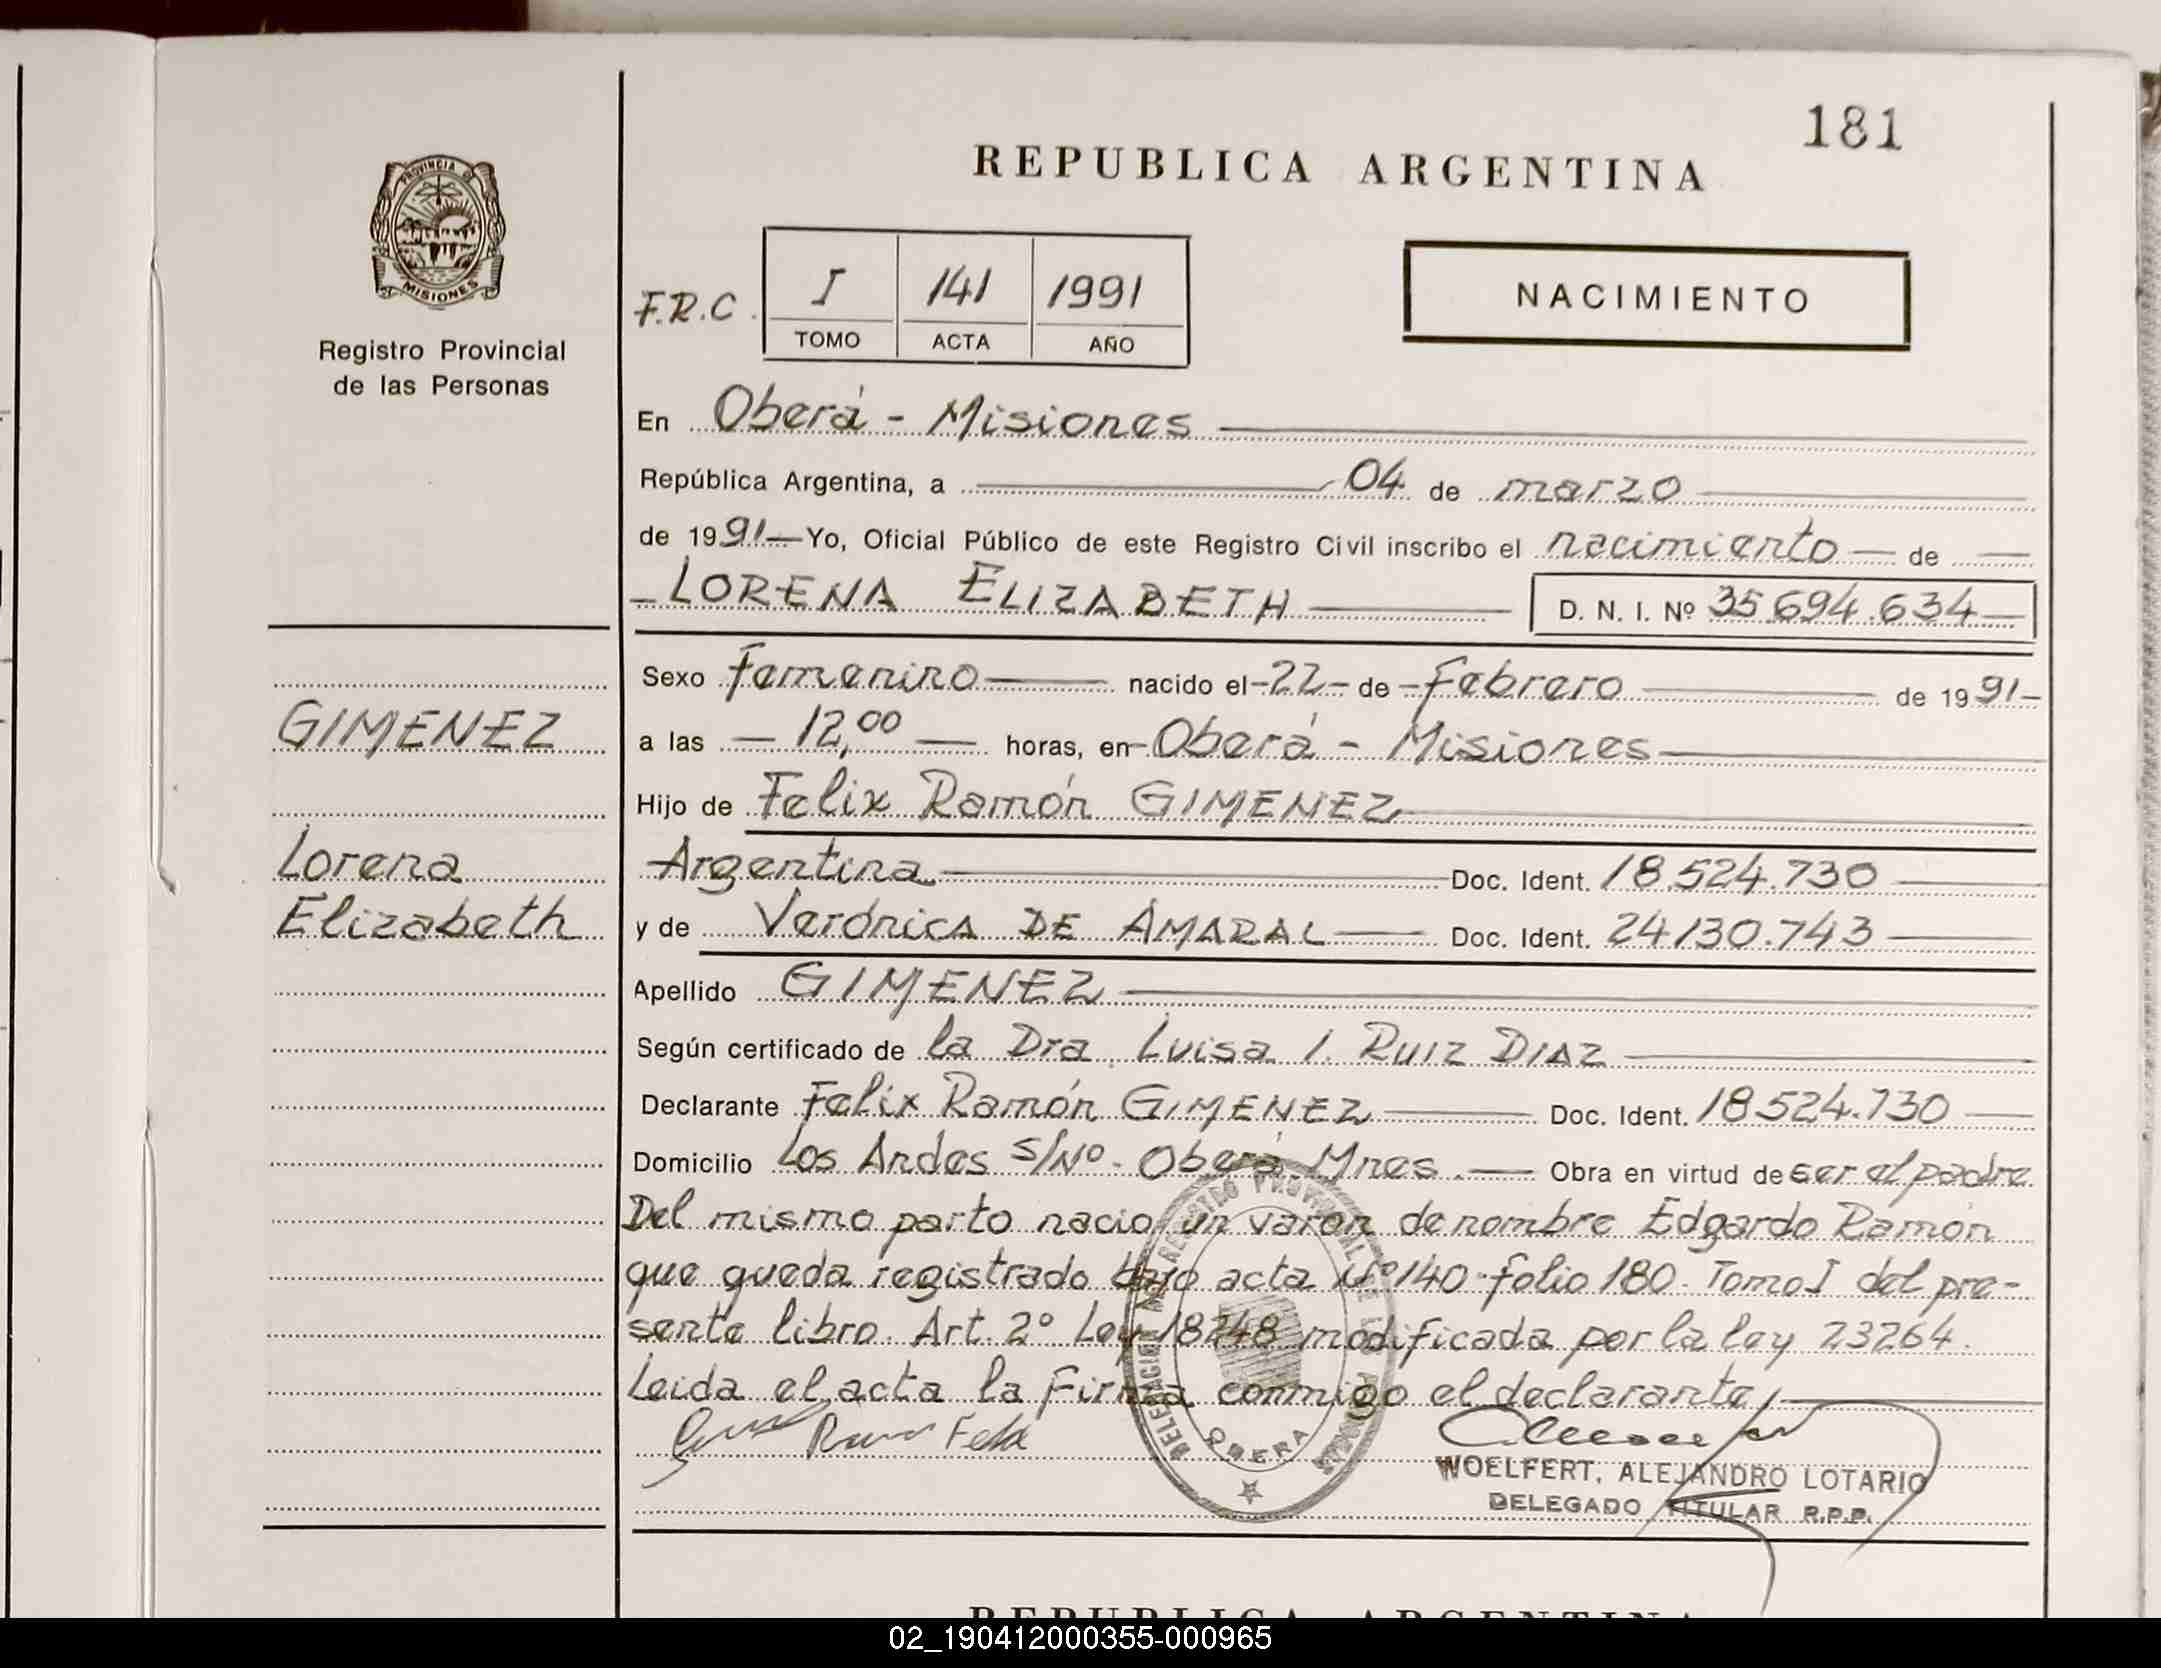 181
REPUBLICA ARGENTINA
PROVINCIA DE
MISIONES
Registro Provincial
de las Personas
F.R.C.
I 141 1991
TOMO ACTA AÑO
NACIMIENTO
En Oberá - Misiones
República Argentina, a 04 de marzo
de 1991 Yo, Oficial Público de este Registro Civil inscribo el nacimiento de
LORENA ELIZABETH D. N. I. Nº 35.694.634
Sexo Femenino nacido el 22 de Febrero de 1991
GIMENEZ
a las 12,00 horas, en Oberá - Misiones
Hijo de Felix Ramón GIMENEZ
Lorena
Argentina Doc. Ident. 18.524.730
Elizabeth
y de Verónica DE AMARAL Doc. Ident. 24.130.743
Apellido GIMENEZ
Según certificado de la Dra. Luisa I. RUIZ DIAZ
Declarante Felix Ramón GIMENEZ Doc. Ident. 18.524.730
Domicilio Los Andes S/Nº - Oberá Mnes. Obra en virtud de ser el padre
Del mismo parto nacio un varon de nombre Edgardo Ramón
que queda registrado bajo acta Nº 140 - folio 180 - Tomo I del pre-
sente libro. Art. 2º Ley 18248 modificada por la ley 23264.
Leida el acta la Firma conmigo el declarante
OBERA
WOELFERT, ALEJANDRO LOTARIO
DELEGADO TITULAR R.P.P.
REPUBLICA ARGENTINA
02_190412000355-000965